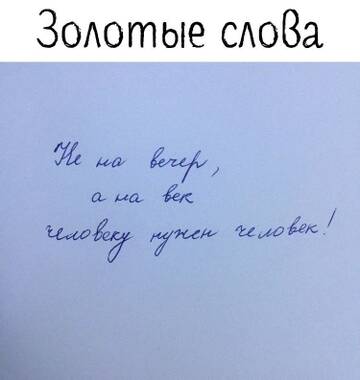 Золотые слова
Не на вечер,
а на век
человеку нужен человек!